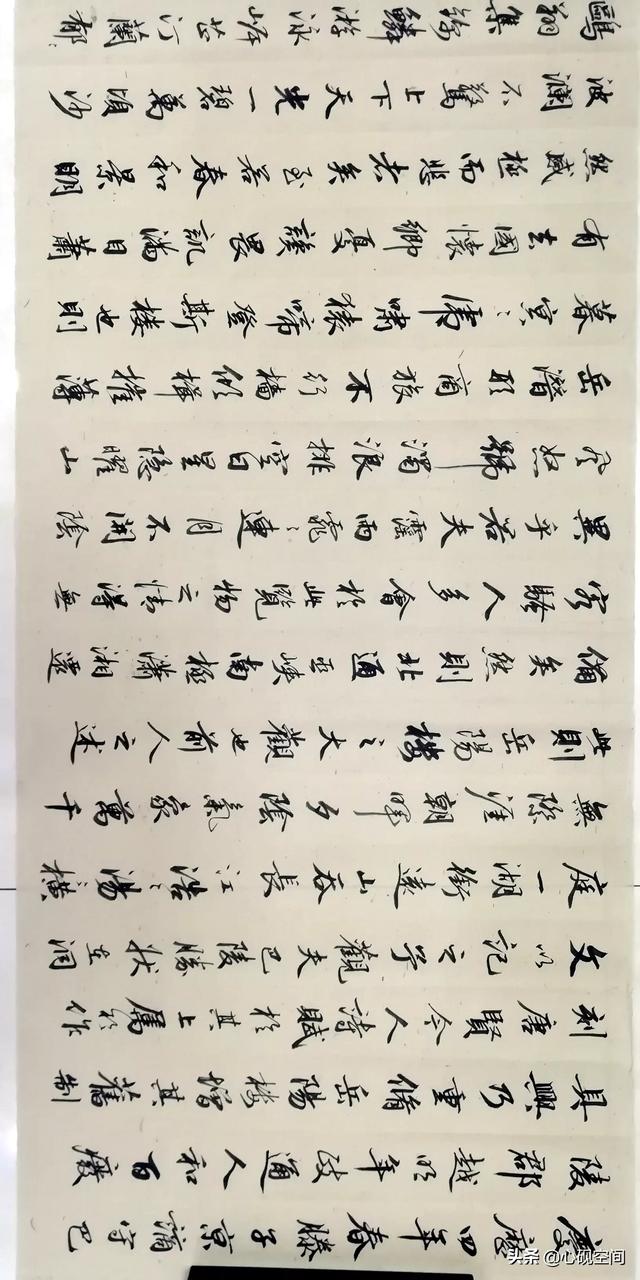 慶曆四年春滕子京謫守巴
陵郡越明年政通人和百廢
具興乃重脩岳陽樓增其舊制
刻唐賢今人詩賦於其上屬於作
文以記之予觀夫巴陵勝狀在洞
庭一湖銜遠山吞長江浩〻湯〻橫
無際涯朝暉夕陰氣象萬千
此則岳陽樓之大觀也前人之述
備矣然則北通巫峽南極瀟湘遷
客騷人多會於此覽物之情得無
異乎若夫霪雨霏〻連月不開陰
風怒號濁浪排空日星隱曜山
岳潛形商旅不行檣傾楫摧薄
暮冥〻虎嘯猿啼登斯樓也則
有去國懷鄉憂讒畏譏滿目蕭
然感極而悲者矣至若春和景明
波瀾不驚上下天光一碧萬頃沙
鷗翔集錦鱗游泳岸芷汀蘭郁
头条 @心砚空间